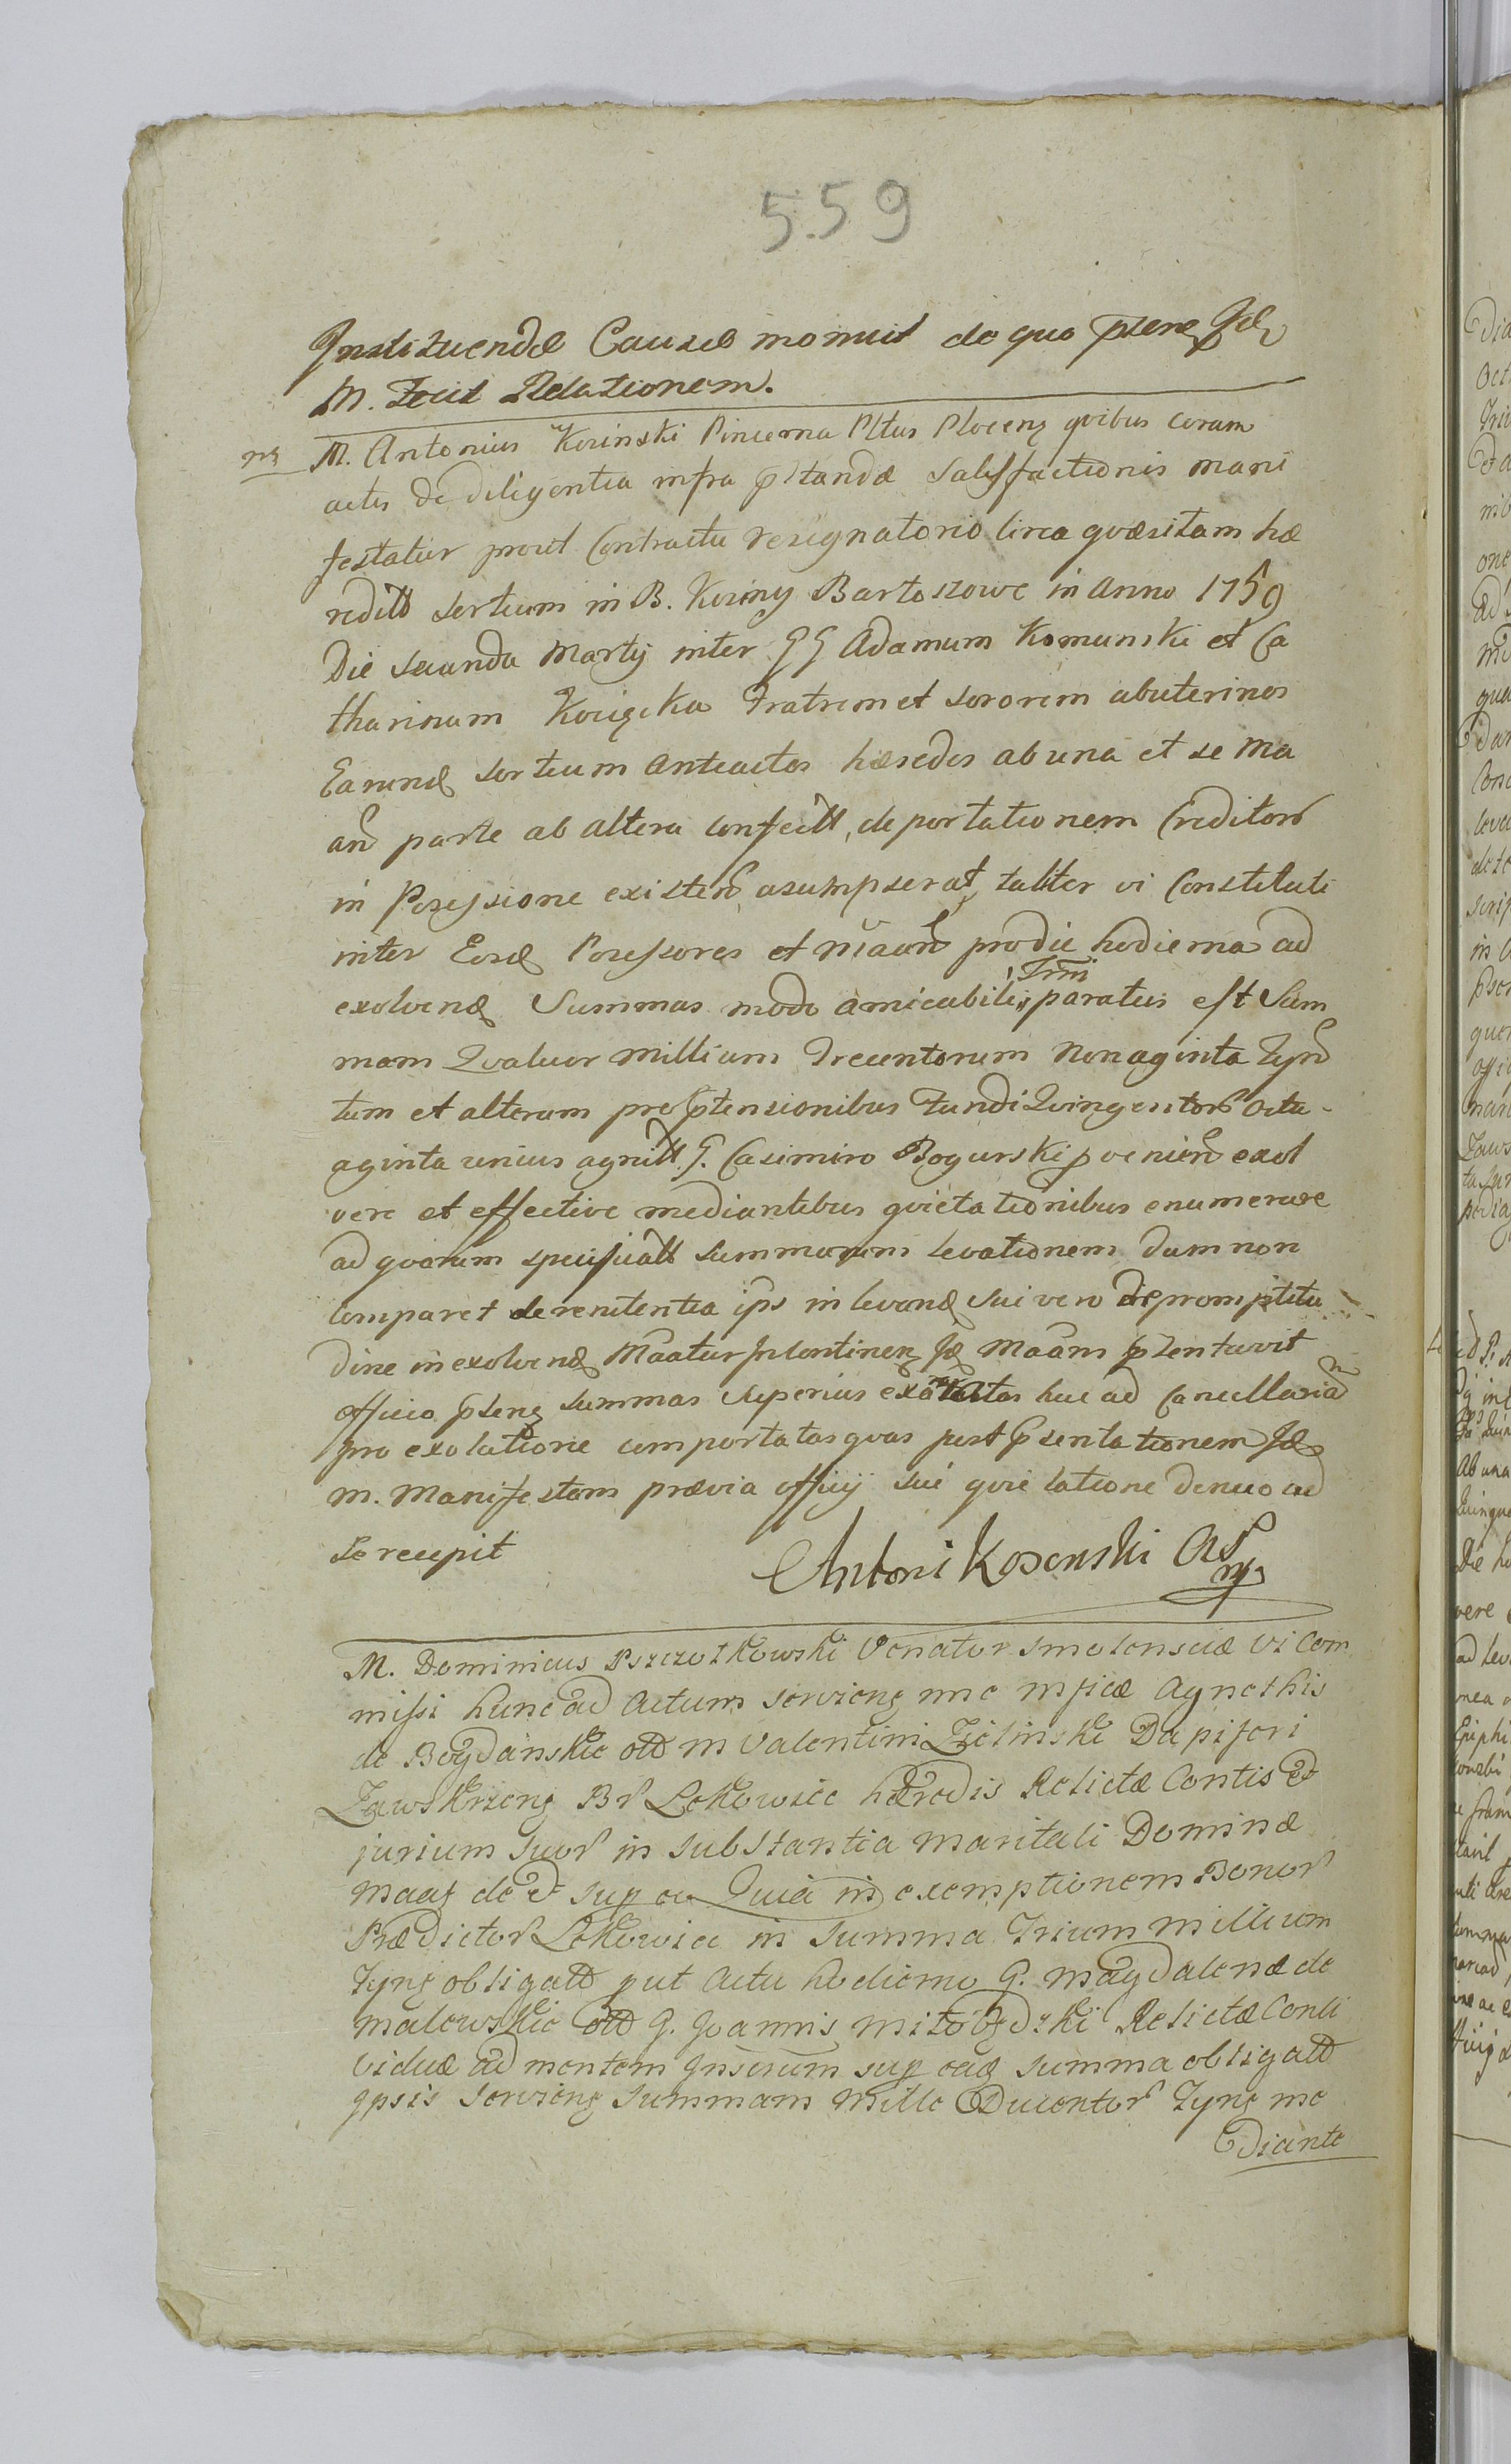 559
Instituendæ Causæ monuit de quo psens Idē
M. Fecit Relationem.
M. Antonius Kosinski Pincerna Pltus Plocens quibus coram
actis de diligentia infra pstandæ satisfactionis mani
festatur prout Contractu resignatorio circa quæsitam hæ
reditt sortium in B. Kosiny Bartoszowe in Anno 1759
Die secunda Martij inter GG Adamum Komunski et Ca
tharinam fratrem et sororem abuterinos
Earund sortium anteactos hæredes ab una et se Ma
an parte ab altera confectt, deportationem Creditor
in Possessione existen asumpserat, taliter vi Constituti
inter Eosd Possessores et Maan pro die hodierna ad
exolvend Summas modo amicabili paratus est Sum
mam Qvatuor Millium Trecentorum Nonaginta Tyn
tum et alteram pro ptensionibus fundi Qvingentor octu-
aginta unius agnitt G. Casimiro Bogurski pvenien exol
vere et effective mediantibus qvietationibus enumerare
ad qvarum specificatt summarum levationem dum non
comparet de renitentia ips in levand sui vero de promptitu
dine in exolvend Maatur Incontinen Id Maans psentavit
officio psens summas superius huc ad Cancellariam
pro exolutione comportatas qvas post psentationem Id
M. Manifestans prævia officij sui qvietatione denuo ad
se recepit
Antoni Kosenski
M. Dominicus Pszczolkowski Venator Smolensciæ vi Com
missi hunc ad Actum serviens nne mficæ Agnethis
de Bogdanskie ott M Valentini Zielinski Dapiferi
Zawskrzens Br Lekowice hæredis Relictæ Contis et
jurium suor in substantia maritali Dominæ
Maaf de et sup eo Quia in exemptionem Bonor
Prædictor Lekowice in summa Trium millium
Tyne obligatt put Actu hodierno G. Magdalenæ de
Malewskie ott G. Joannis Milobedzki Relictæ Conti
viduæ ad mentem Inserum sup ead summa obligatt
Ipsis serviens summam Mille Ducentor Tyne me
diante